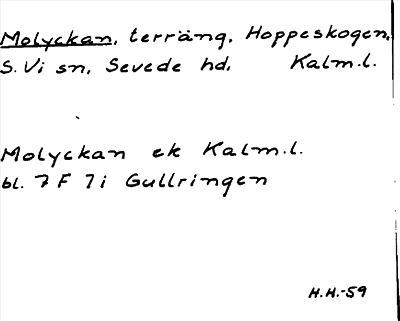 Molyckan, terräng, Hoppeskogen,
S. Vi sn, Sevede hd, Kalm.l.
Molyckan ek Kalm.l.
bl. 7 F 7i Gullringen
H.H.-59